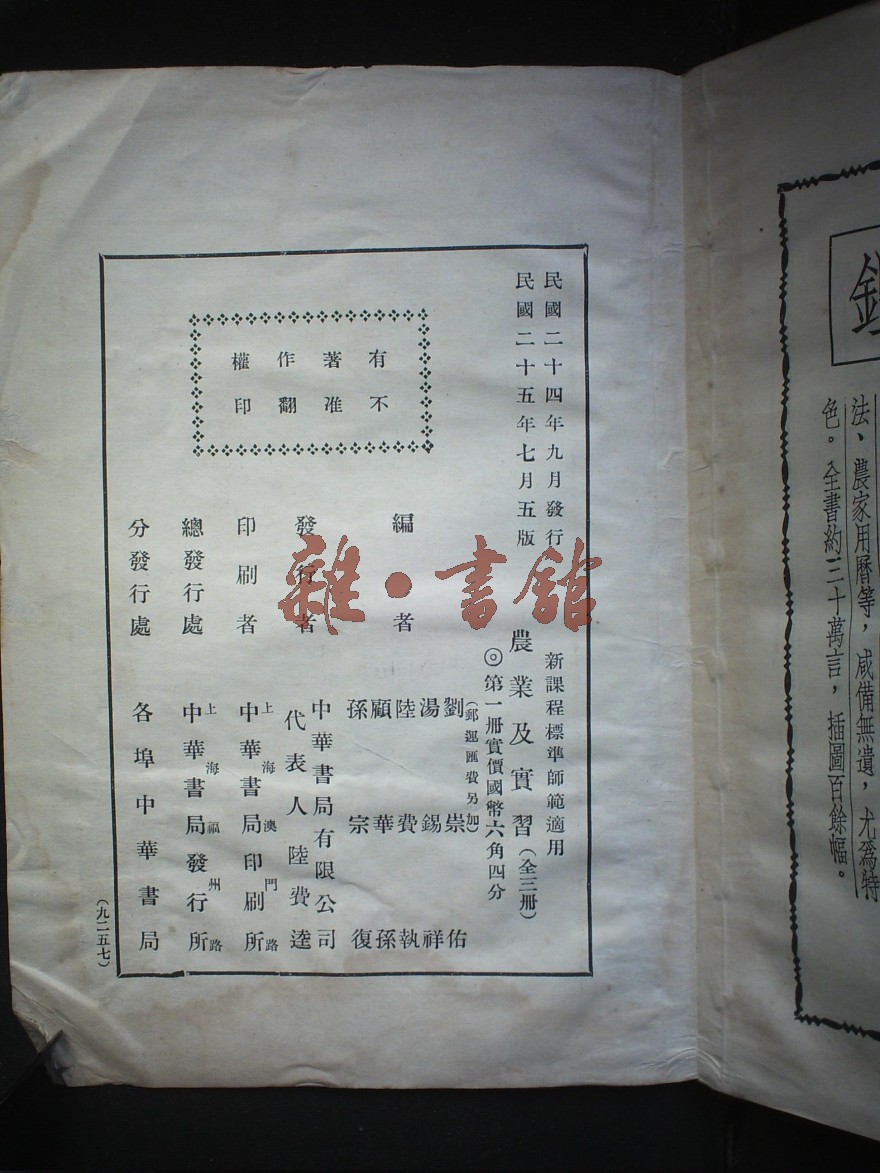 法、農家用曆等，咸備無遺，尤爲特
色。全書約三十萬言，插圖百餘幅。
民國二十四年九月發行
民國二十五年七月五版
有著作權
不准翻印
新課程標準師範適用
農業及實習（全三冊）
◎第一冊實價國幣六角四分
（郵運匯費另加）
編者
劉崇佑
湯錫祥
陸費執
顧華孫
孫宗復
發行者
中華書局有限公司
代表人 陸費逵
印刷者
上海澳門路
中華書局印刷所
總發行處
上海福州路
中華書局發行所
分發行處
各埠中華書局
（九二五七）
雜·書館